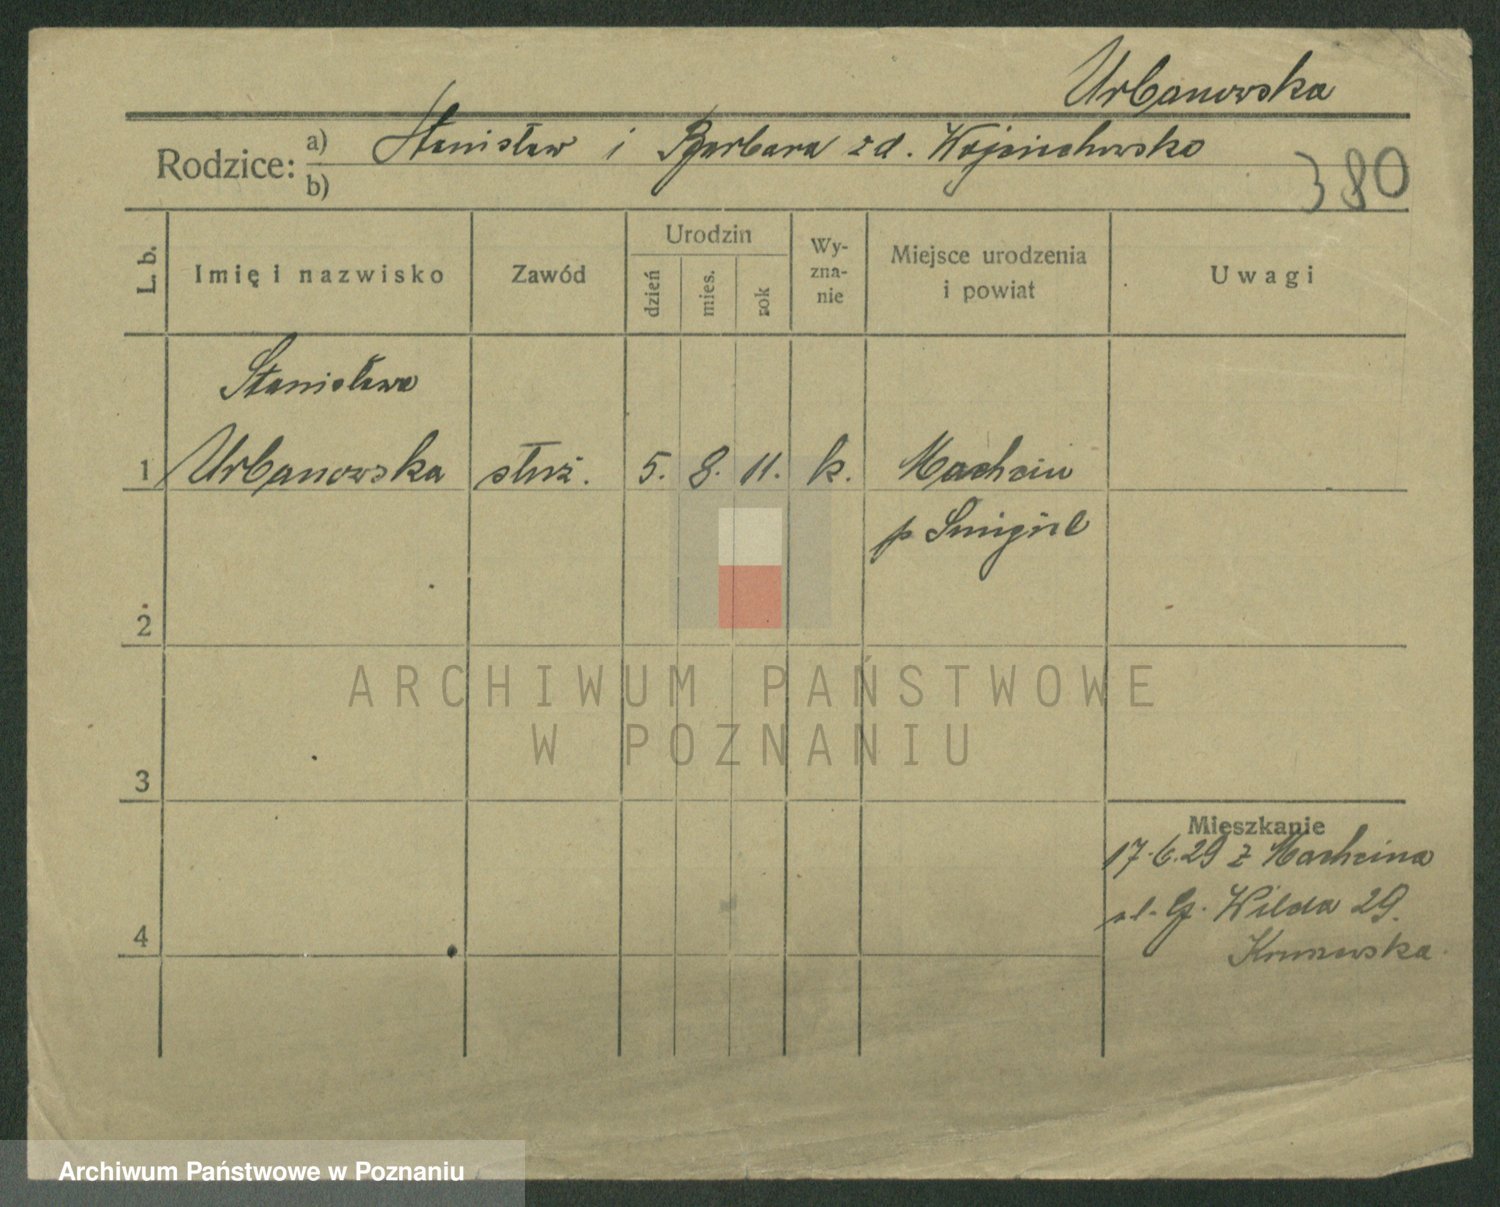 Urbanowska
Rodzice: a) Stanisław i Barbara zd. Wojciechowska
b)
380
L. b.
Imię i nazwisko
Zawód
Urodzin
dzień
mies.
rok
Wy-
zna-
nie
Miejsce urodzenia
i powiat
Uwagi
Stanisława
1 Urbanowska służ. 5. 8. 11. k. Machcin
p Smigiel
2
3
Mieszkanie
17.6.29 z Machcina
ul. G. Wilda 29.
4
ARCHIWUM PAŃSTWOWE
W POZNANIU
Archiwum Państwowe w Poznaniu